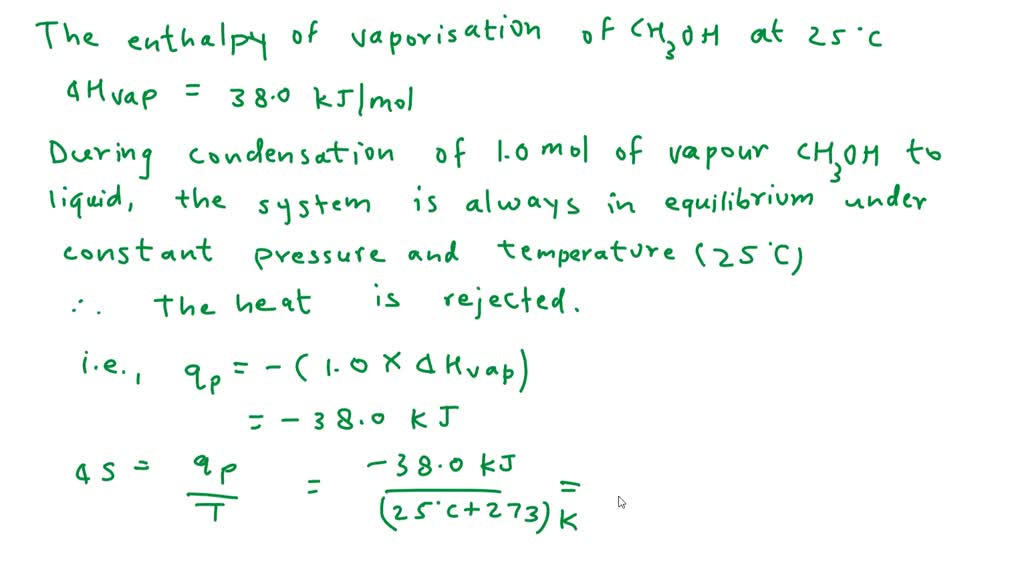 The enthalpy of vaporisation of CH₃OH at 25°C
ΔHvap = 38.0 kJ/mol
During condensation of 1.0 mol of vapour CH₃OH to
liquid, the system is always in equilibrium under
constant pressure and temperature (25°C)
∴ The heat is rejected.
i.e., qₚ = -(1.0 × ΔHvap)
= -38.0 kJ
ΔS = qₚ/T = -38.0 kJ/(25°C+273) K =